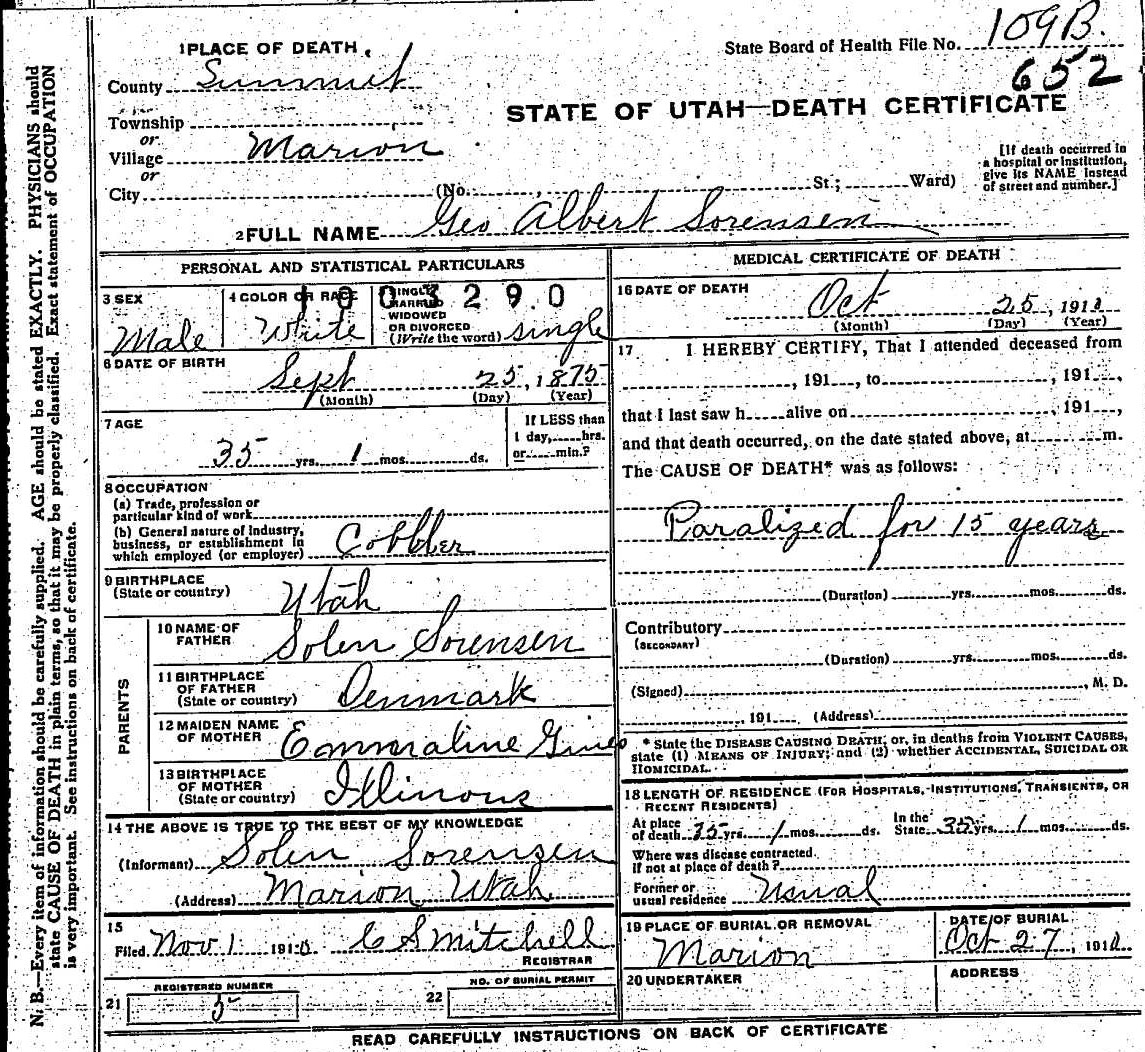 1 PLACE OF DEATH
State Board of Health File No. 109B.
County Summit
652
STATE OF UTAH—DEATH CERTIFICATE
Township
or
Village Marion
or
City (No. , St.; Ward)
[If death occurred in
a hospital or institution,
give its NAME instead
of street and number.]
2 FULL NAME Geo Albert Sorensen
PERSONAL AND STATISTICAL PARTICULARS
3 SEX
Male
4 COLOR OR RACE
White
1003290
SINGLE
MARRIED
WIDOWED
OR DIVORCED
(Write the word) single
6 DATE OF BIRTH
Sept 25, 1875
(Month) (Day) (Year)
7 AGE
35 yrs. 1 mos. ds.
If LESS than
1 day, hrs.
or min.?
8 OCCUPATION
(a) Trade, profession or
particular kind of work
(b) General nature of industry,
business, or establishment in
which employed (or employer) Cobbler
9 BIRTHPLACE
(State or country) Utah
PARENTS
10 NAME OF
FATHER Solen Sorensen
11 BIRTHPLACE
OF FATHER
(State or country) Denmark
12 MAIDEN NAME
OF MOTHER Emmeraline
13 BIRTHPLACE
OF MOTHER
(State or country) Illinous
14 THE ABOVE IS TRUE TO THE BEST OF MY KNOWLEDGE
(Informant) Solen Sorensen
(Address) Marion Utah
15
Filed Nov 1 1910 C S Mitchell
REGISTRAR
21 REGISTERED NUMBER
5
22 NO. OF BURIAL PERMIT
MEDICAL CERTIFICATE OF DEATH
16 DATE OF DEATH
Oct 25, 1910
(Month) (Day) (Year)
17 I HEREBY CERTIFY, That I attended deceased from
, 191 , to , 191 ,
that I last saw h alive on , 191 ,
and that death occurred, on the date stated above, at m.
The CAUSE OF DEATH* was as follows:
Paralized for 15 years
(Duration) yrs. mos. ds.
Contributory
(SECONDARY)
(Duration) yrs. mos. ds.
(Signed) , M. D.
, 191 (Address)
* State the DISEASE CAUSING DEATH; or, in deaths from VIOLENT CAUSES,
state (1) MEANS OF INJURY; and (2) whether ACCIDENTAL, SUICIDAL OR
HOMICIDAL.
18 LENGTH OF RESIDENCE (FOR HOSPITALS, INSTITUTIONS, TRANSIENTS, OR
RECENT RESIDENTS)
At place
of death 35 yrs. 1 mos. ds.
In the
State 35 yrs. 1 mos. ds.
Where was disease contracted
if not at place of death?
Former or
usual residence Usual
19 PLACE OF BURIAL OR REMOVAL
Marion
DATE OF BURIAL
Oct 27, 1910
20 UNDERTAKER
ADDRESS
READ CAREFULLY INSTRUCTIONS ON BACK OF CERTIFICATE
N. B.—Every item of information should be carefully supplied. AGE should be stated EXACTLY. PHYSICIANS should
state CAUSE OF DEATH in plain terms, so that it may be properly classified. Exact statement of OCCUPATION
is very important. See instructions on back of certificate.